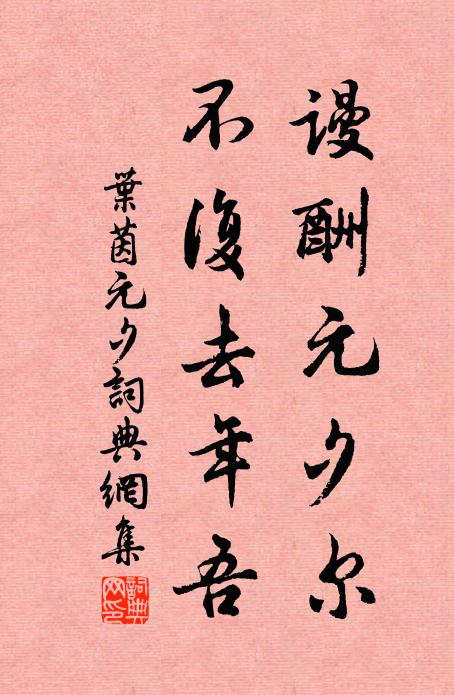 謾酬元夕尔
不復去年吾
葉茵元夕詞典網集
詞典網印